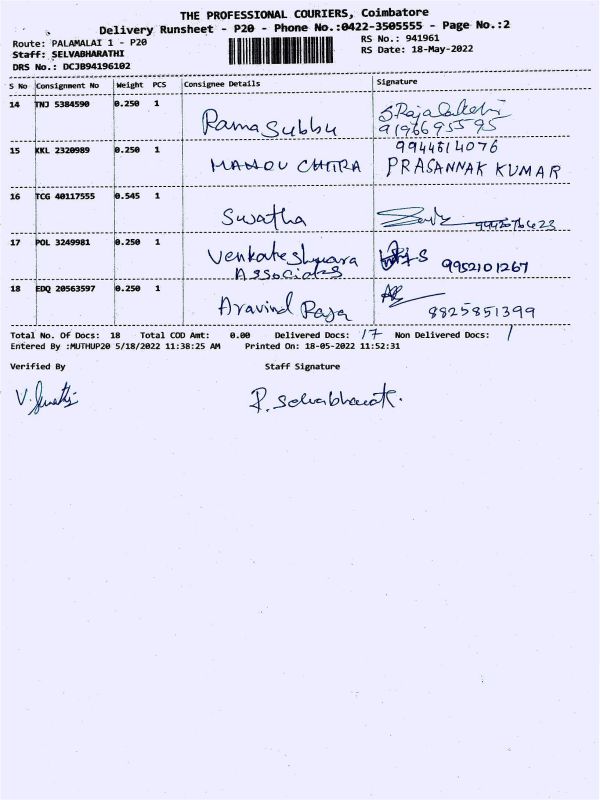 THE PROFESSIONAL COURIERS, Coimbatore
Delivery Runsheet - P20 - Phone No.:0422-3505555 - Page No.:2
Route: PALAMALAI 1 - P20 RS No.: 941961
Staff: SELVABHARATHI RS Date: 18-May-2022
DRS No.: DCJB94196102
S No Consignment No Weight PCS Consignee Details Signature
14 TNJ 5384590 0.250 1 Rama Subbu S Rajalakshmi
9196695595
15 KKL 2320989 0.250 1 9944614076
CHITRA PRASANNAK KUMAR
16 TCG 40117555 0.545 1
Swatha
17 POL 3249981 0.250 1 Venkateshwara
Associates 9952101267
18 EDQ 20563597 0.250 1
Aravind Raja 8825851399
Total No. Of Docs: 18 Total COD Amt: 0.00 Delivered Docs: 17 Non Delivered Docs: 1
Entered By :MUTHUP20 5/18/2022 11:38:25 AM Printed On: 18-05-2022 11:52:31
Verified By Staff Signature
P. Selvabharathi.